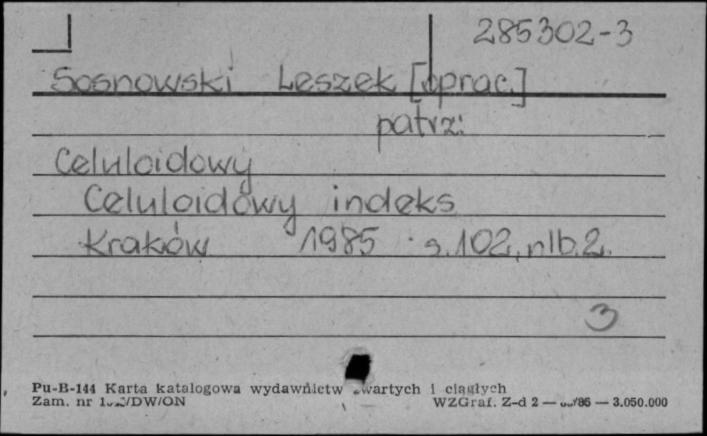 285302-3
Sosnowski Leszek [oprac.]
patrz:
Celuloidowy
Celuloidowy indeks
Kraków 1985 s. 102, nlb. 2.
3
Pu-B-144 Karta katalogowa wydawnictw zwartych i ciągłych
Zam. nr /DW/ON WZGraf. Z-d 2 — /86 — 3.050.000